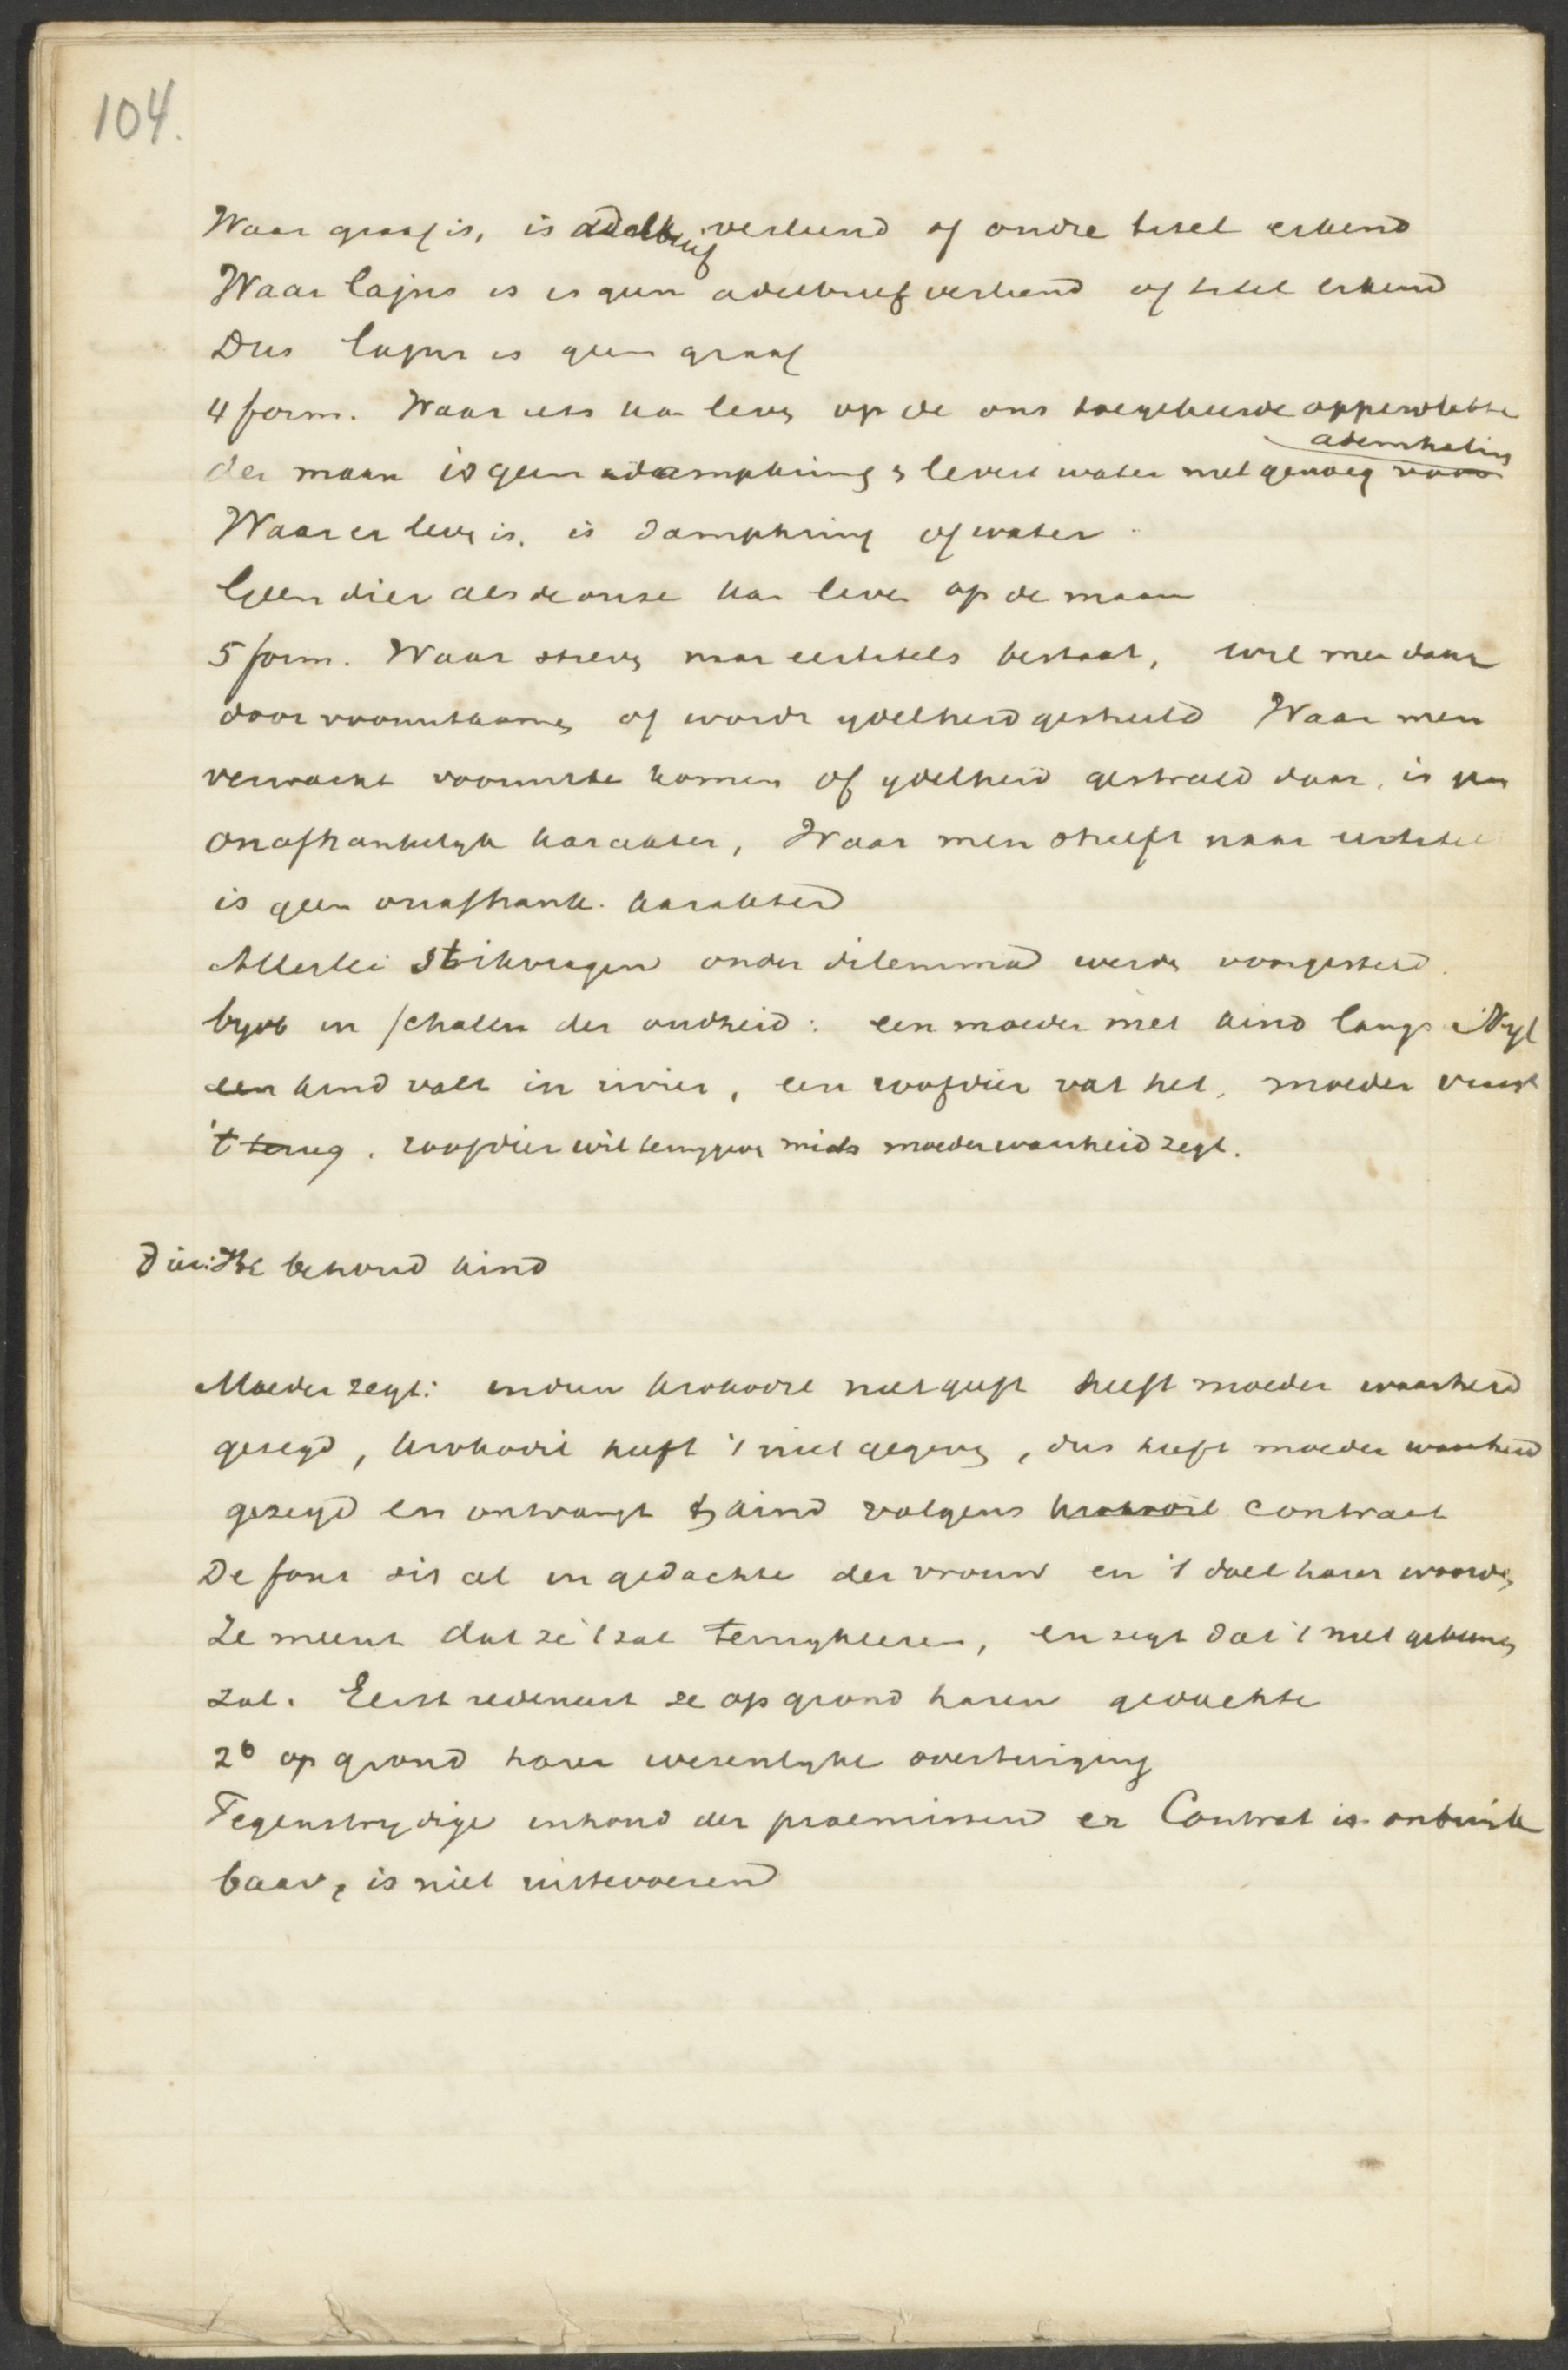 104.
Waar graaf is, is adelbrief verleend of oudre titel erkend
Waar Cajus is is geen adelbrief verleend of titel erkend
Dus Cajus is geen graaf
4 form. Waar iets kan leven op de ons toegekeerde oppervlakte
ademhaling
der maan is geen dampkring & levert water niet genoeg voor
Waar er leven is, is dampkring of water
Geen dier als de onze kan leven op de maan
5 form. Waar streven naar eertitels bestaat, wil men daar
door vooruitkomen of wordt ydelheid gestreeld Waar men
verwacht vooruit te komen of ydelheid gestreeld daar, is
onafhankelyk karakter, Waar men streeft naar eertitel
is geen onafhank. karakter
Allerlei strikvragen onder dilemma werden voorgesteld.
byvb in scholen der oudheid: een moeder met kind langs Nyl
een kind valt in rivier, een roofdier vat het, moeder vraagt
't terug. roofdier wil teruggeven mits moeder waarheid zegt.
Dier: Ik behoud kind
Moeder zegt: indien krokodil niet geeft heeft moeder waarheid
gezegd, krokodil heeft 't niet gegeven, dus heeft moeder waarheid
gezegd en ontvangt kind volgens krokodil contract
De fout zit al in gedachte der vrouw en 't doel harer woorden
Ze meent dat ze 't zal terugkrijgen, en zegt dat 't niet gebeuren
zal. Eerst redeneert ze op grond harer gedachte
2o op grond harer wezenlyke overtuiging
Tegenstrydige inhoud der praemissen en Contract is onbruik
baar, is niet uittevoeren